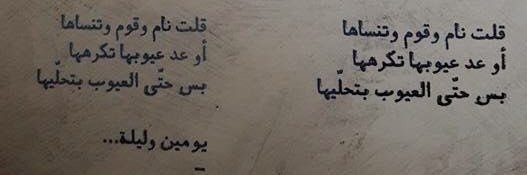 قلت نام وقوم وتنساها
أو عد عيوبها تكرهها
بس حتّى العيوب بتحلّيها
قلت نام وقوم وتنساها
أو عد عيوبها تكرهها
بس حتّى العيوب بتحلّيها
يومين وليلة...